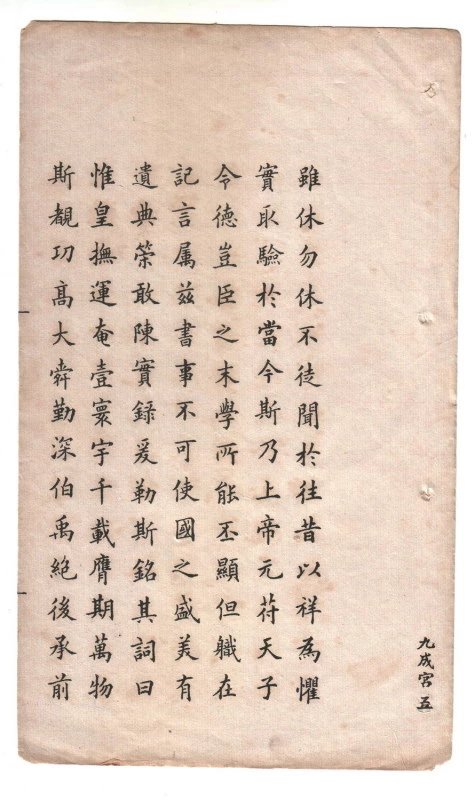 雖休勿休不徒聞於往昔以祥為懼
實取驗於當今斯乃上帝元符天子
令德豈臣之末學所能丕顯但職在
記言属茲書事不可使國之盛美有
遺典策敢陳實錄爰勒斯銘其詞曰
惟皇撫運奄壹寰宇千載膺期萬物
斯覩功高大舜勤深伯禹絕後承前
九成宮 五